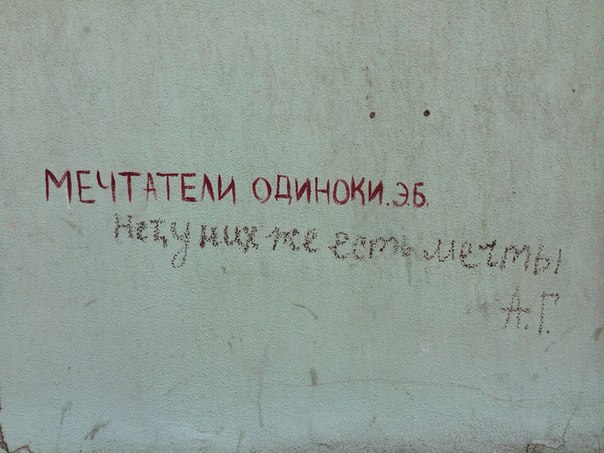 МЕЧТАТЕЛИ ОДИНОКИ. Э.Б.
Нет, у них же есть мечты
А.Г.